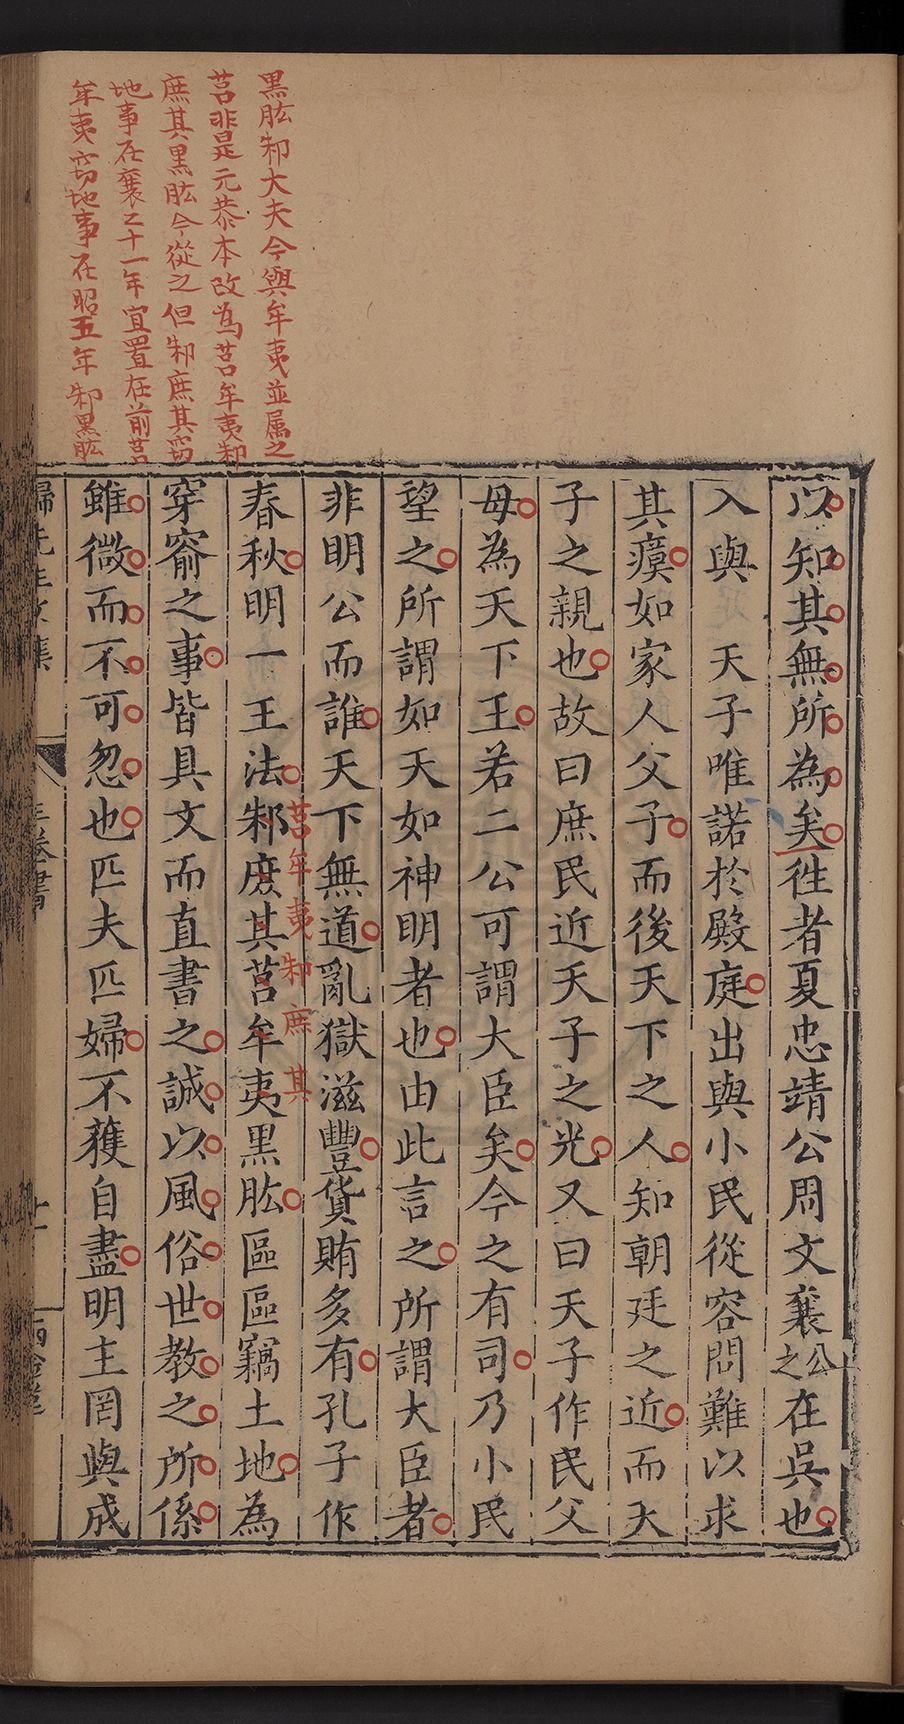 黑肱邾大夫今與牟夷並属之
莒非是元恭本改為莒牟夷邾
庶其黑肱今從之但邾庶其竊
地事在襄之十一年宜置在前莒
牟夷竊地事在昭五年邾黑肱
以知其無所為矣徃者夏忠靖公周文襄公之在吳也
入與 天子唯諾於殿庭出與小民從容問難以求
其瘼如家人父子而後天下之人知朝廷之近而大
子之親也故曰庶民近天子之光又曰天子作民父
母為天下王若二公可謂大臣矣今之有司乃小民
望之所謂如天如神明者也由此言之所謂大臣者
非明公而誰天下無道亂獄滋豐貨賄多有孔子作
春秋明一王法邾庶其莒牟夷黑肱區區竊土地為
莒牟夷邾庶其
穿窬之事皆具文而直書之誠以風俗世教之所係
雖微而不可忽也匹夫匹婦不獲自盡明主罔與成